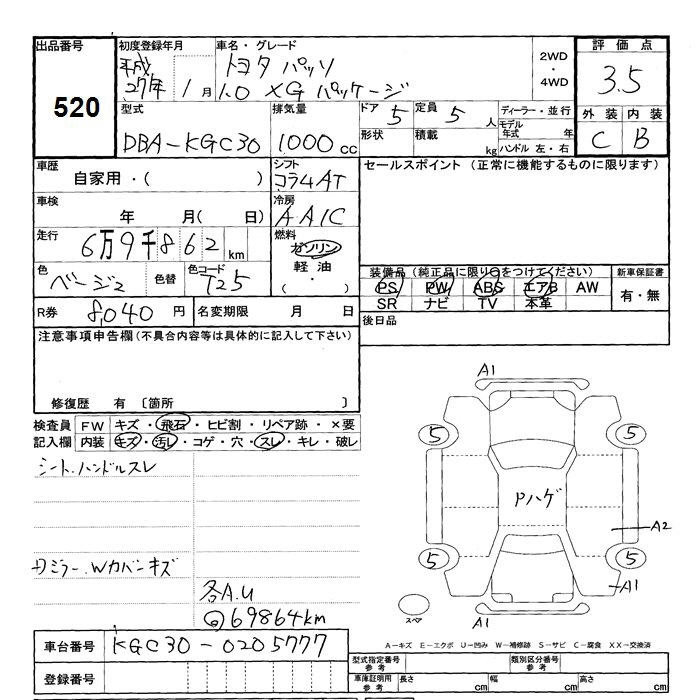 出品番号
520
初度登録年月
平成
27年 1月
車名・グレード
トヨタ パッソ
1.0 XG パッケージ
2WD
・
4WD
評価点
3.5
外装 内装
C B
型式
DBA-KGC30
排気量
1000 cc
ドア 5
定員 5 人
形状
積載 kg
ディーラー・並行
モデル年式 年
ハンドル 左・右
車歴
自家用・( )
シフト
コラム4AT
セールスポイント (正常に機能するものに限ります)
車検
年 月( 日)
冷房
AAC
走行
6万9千862km
燃料
ガソリン
軽油
( ・ )
色
ベージュ
色替
色コード
T25
装備品 (純正品に限り○をつけてください)
PS PW ABS エアB AW
SR ナビ TV 本革
新車保証書
有・無
R券 8,040 円
名変期限 月 日
後日品
注意事項申告欄 (不具合内容等は具体的に記入して下さい)
修復歴 有 〔箇所 〕
検査員
記入欄
FW キズ・飛石・ヒビ割・リペア跡・×要
内装 キズ・汚レ・コゲ・穴・スレ・キレ・破レ
シート、ハンドルスレ
ミラー、Wカバーキズ
各A.U
69864km
A1
5 5
Pハゲ
A2
5 5
A1
スペア
A1
A-キズ E-エクボ U-凹み W-補修跡 S-サビ C-腐食 XX-交換済
車台番号 KGC30-0205777
登録番号
型式指定番号
参考
類別区分番号
参考
車庫証明用
参考
長さ cm 幅 cm 高さ cm